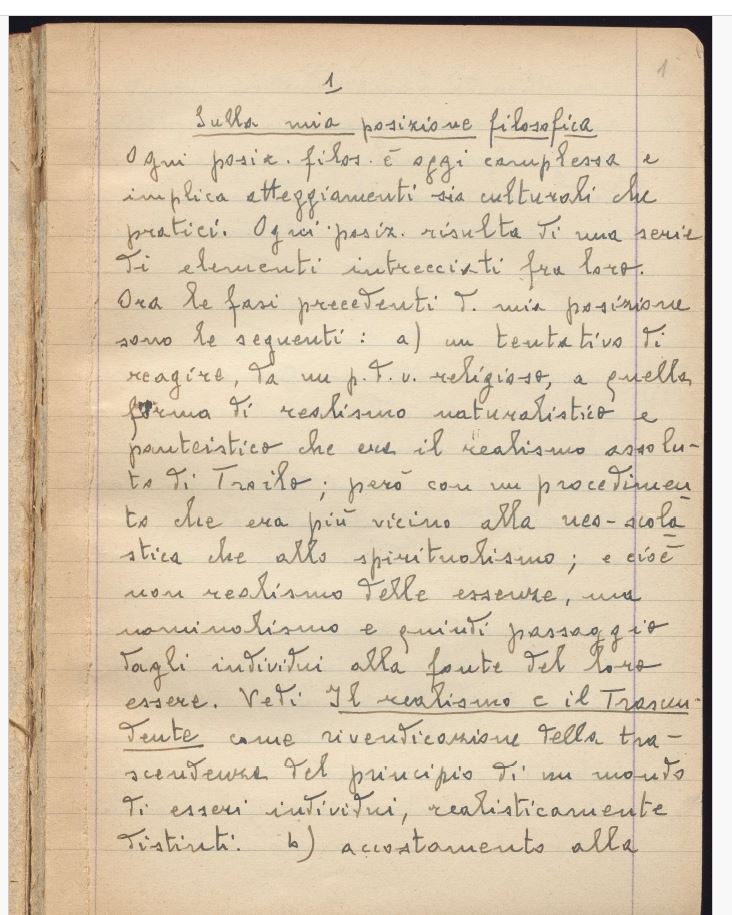 1
1
Sulla mia posizione filosofica
Ogni posiz. filos. è oggi complessa e
implica atteggiamenti sia culturali che
pratici. Ogni posiz. risulta di una serie
di elementi intrecciati fra loro.
Ora le fasi precedenti d. mia posizione
sono le seguenti: a) un tentativo di
reagire, da un p. d. v. religioso, a quella
forma di realismo naturalistico e
panteistico che era il realismo assolu-
to di Troilo; però con un procedimen
to che era più vicino alla neo-scola
stica che allo spiritualismo; e cioè
non realismo delle essenze, ma
nominalismo e quindi passaggio
dagli individui alla fonte del loro
essere. Vedi Il realismo e il Trascen-
dente come rivendicazione della tra-
scendenza del principio di un mondo
di esseri individui, realisticamente
distinti. b) accostamento alla